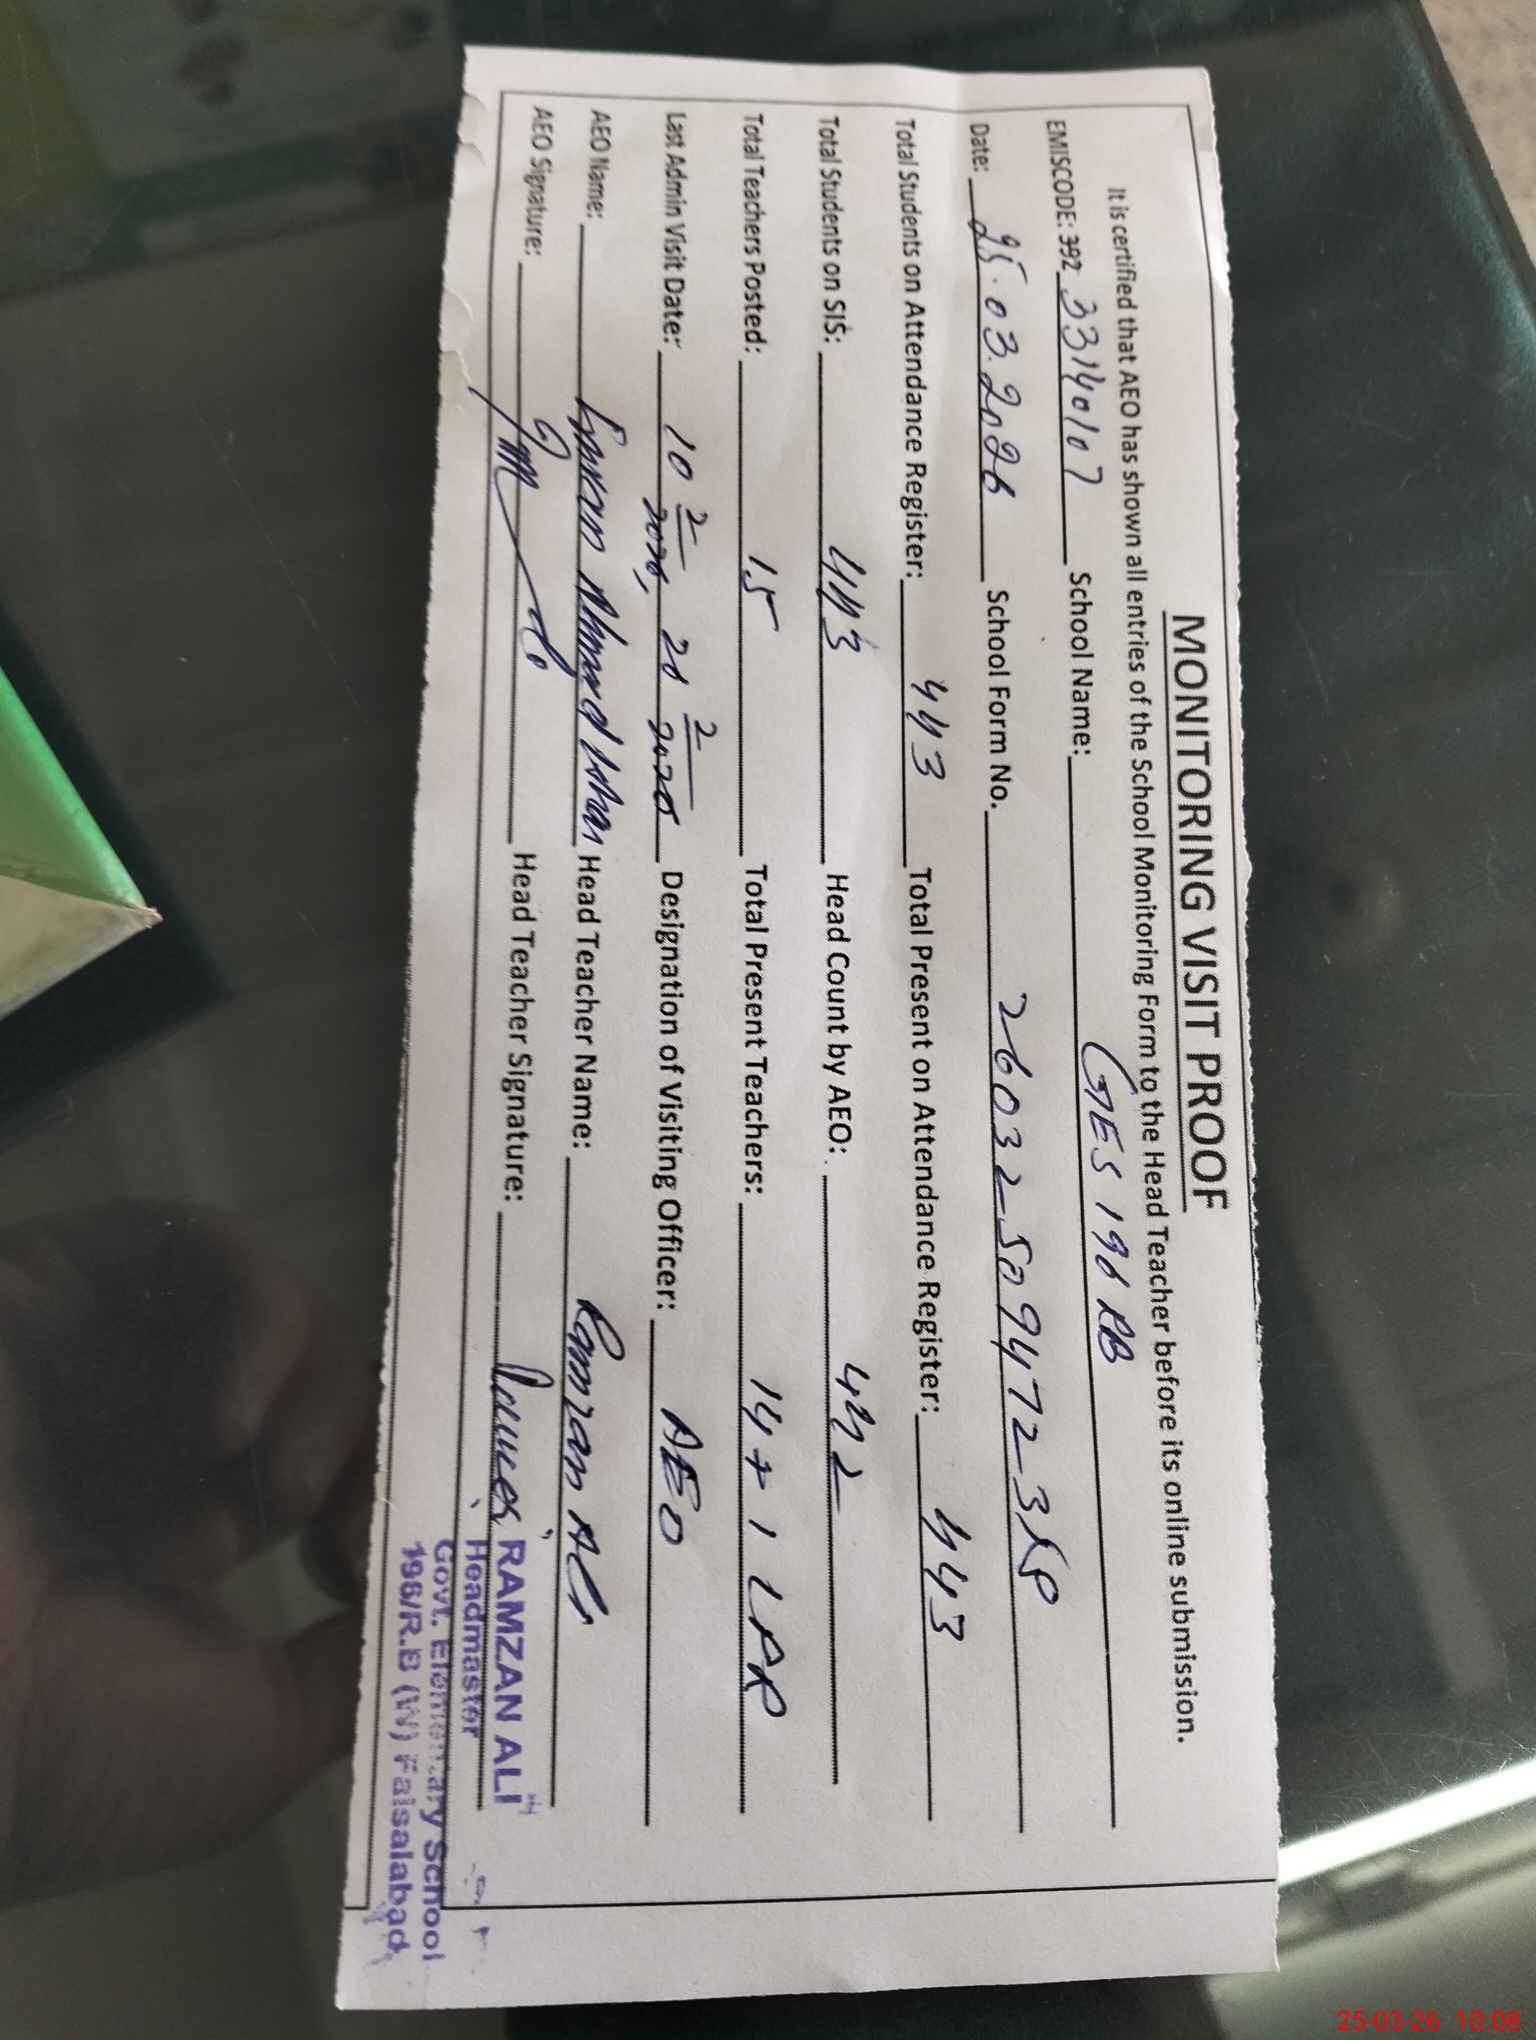 MONITORING VISIT PROOF
It is certified that AEO has shown all entries of the School Monitoring Form to the Head Teacher before its online submission.
EMISCODE: 392 33140107 School Name: GES 196 RB
Date: 25.03.2026 School Form No. 2603250947235
Total Students on Attendance Register: 443 Total Present on Attendance Register: 443
Total Students on SIS: 443 Head Count by AEO: 442
Total Teachers Posted: 15 Total Present Teachers: 14 + 1 LPR
Last Admin Visit Date: 10 2 2026, 20 2 2026 Designation of Visiting Officer: AEO
AEO Name: Ahmad Head Teacher Name: Ramzan Ali
AEO Signature: Head Teacher Signature:
RAMZAN ALI
Headmaster
Govt. Elementary School
196/R.B (W) Faisalabad
25-03-26 10:08